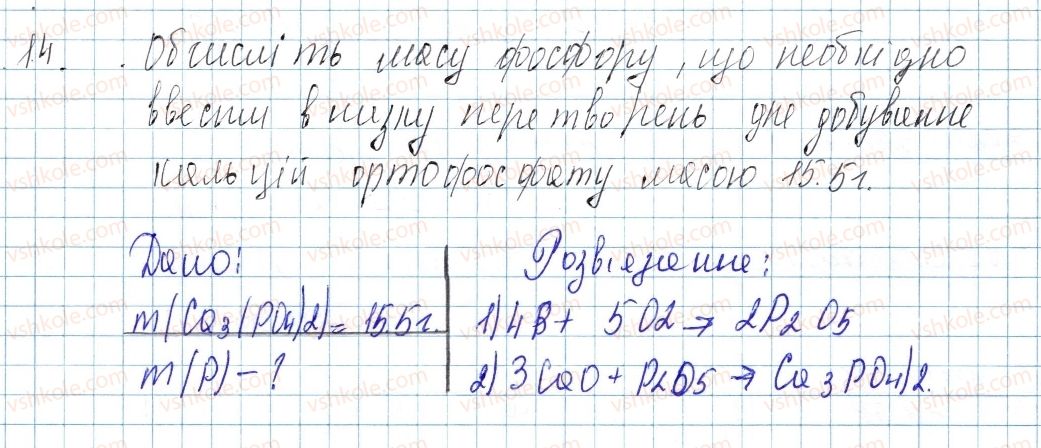 14. Обчисліть масу фосфору, що необхідно
ввести в низку перетворень для добування
кальцій ортофосфату масою 15.5г.
Дано:
m(Ca3(PO4)2)= 155г.
m(P)-?
Розв'язання:
1) 4P+ 5O2 → 2P2O5
2) 3CaO+P2O5 → Ca3PO4)2.